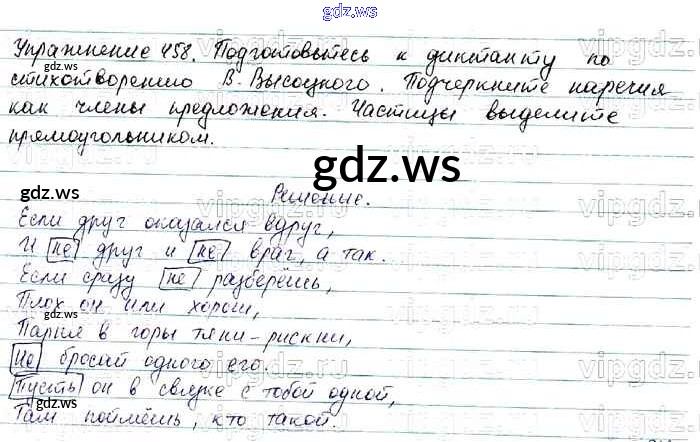 gdz.ws
Упражнение 458. Подготовьтесь к диктанту по
стихотворению В. Высоцкого. Подчеркните наречия
как члены предложения. Частицы выделите
прямоугольником.
gdz.ws
gdz.ws
Решение.
Если друг оказался вдруг,
И не друг и не враг, а так.
gdz.ws
Если сразу не разберёшь,
Плох он или хорош,
Парня в горы тяни-рискни,
Не бросай одного его.
Пусть он в связке с тобой одной,
gdz.ws
Там поймёшь, кто такой.